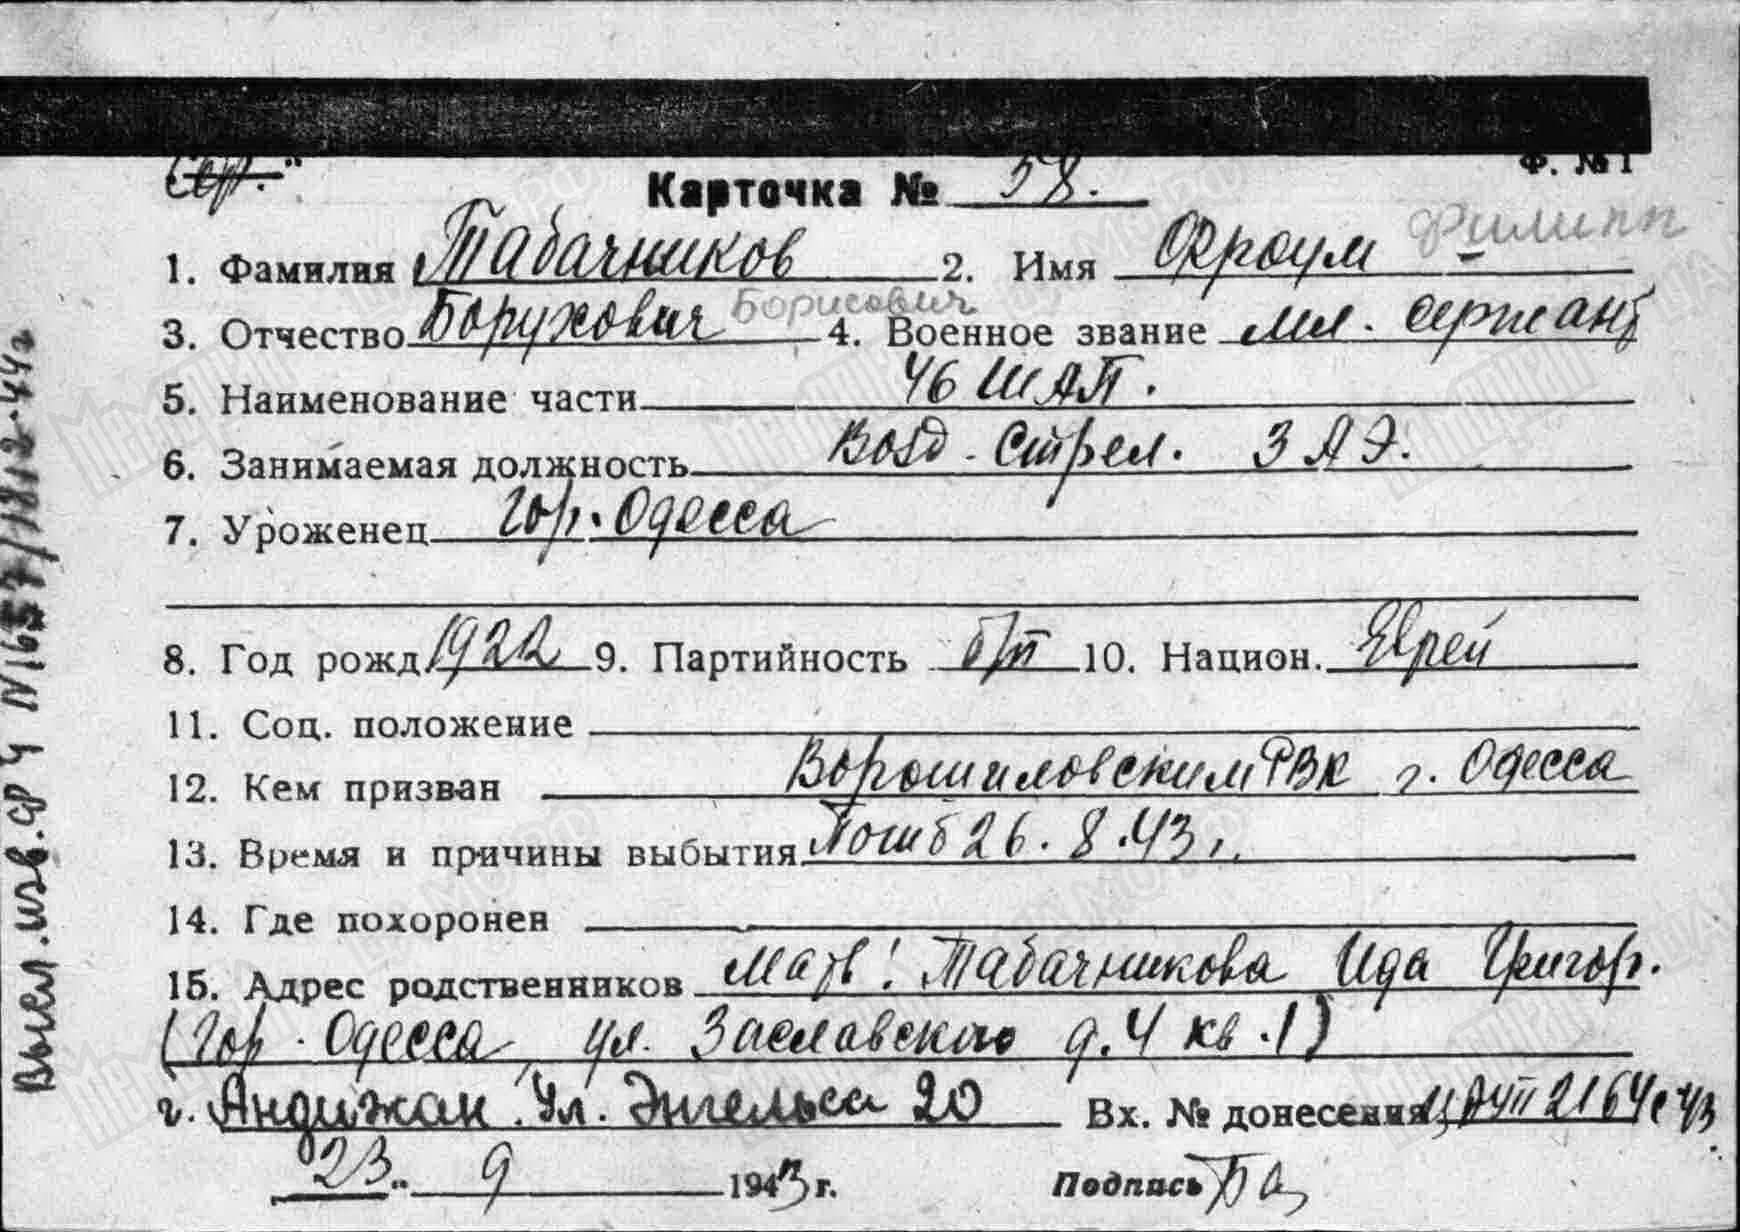 Сер."
Ф. №1
Карточка № 58.
1. Фамилия Табачников 2. Имя Офроум Филипп
3. Отчество Борухович Борисович 4. Военное звание мл. сержант
5. Наименование части 46 ШАП.
6. Занимаемая должность Возд-Стрел. 3 АЭ.
7. Уроженец Гор. Одесса
8. Год рожд. 1922 9. Партийность б/п 10. Национ. Еврей
11. Соц. положение
12. Кем призван Ворошиловским РВК г. Одесса
13. Время и причины выбытия Погиб 26.8.43 г.
14. Где похоронен
15. Адрес родственников Мать: Табачникова Ида Григор.
(Гор. Одесса, ул. Заславского д.4 кв.1)
г. Андижан. Ул. Энгельса 20 Вх. № донесения 2164с 43
23 " 9 1943 г. Подпись
Высл. изв. ф 4 N 1657/18.12-44г